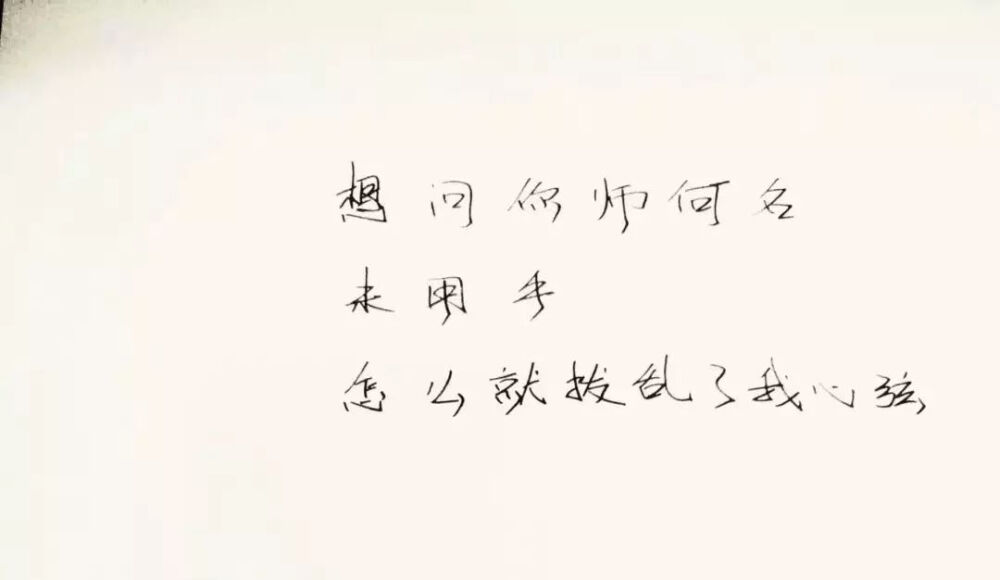 想问你师何名
未用手
怎么就拨乱了我心弦